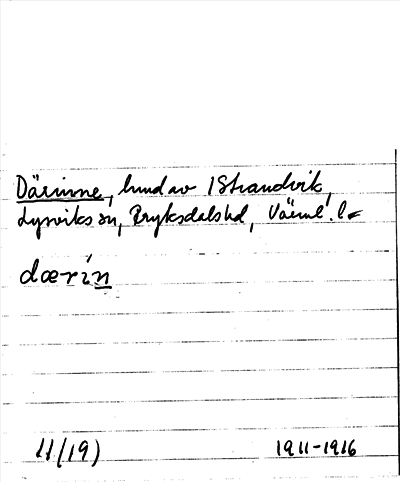 Därinne, hmd av 1 Strandvik,
Lysviks sn, Fryksdals hd, Värml. l.
dærin
11/(19)
1911-1916